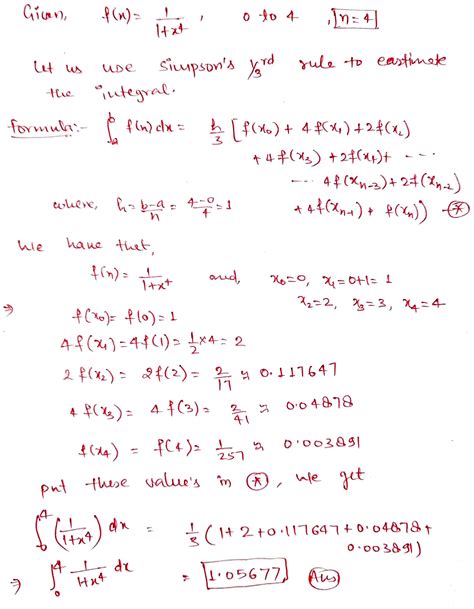 Given, f(x) = 1/(1+x⁴) , 0 to 4 , n=4
Let us use Simpson's 1/3rd rule to eastimate
the integral.
formula:- ∫_a^b f(x) dx = h/3 [f(x₀) + 4f(x₁) + 2f(x₂)
+ 4f(x₃) + 2f(x₄) + ----
---- 4f(xₙ₋₃) + 2f(xₙ₋₂)
where, h = (b-a)/n = (4-0)/4 = 1 + 4f(xₙ₋₁) + f(xₙ)) -⊛
We have that,
f(x) = 1/(1+x⁴) and, x₀=0, x₁=0+1=1
x₂=2, x₃=3, x₄=4
⇒ f(x₀) = f(0) = 1
4f(x₁) = 4f(1) = 1/2 ×4 = 2
2f(x₂) = 2f(2) = 2/17 ≈ 0.117647
4f(x₃) = 4f(3) = 2/41 ≈ 0.04878
f(x₄) = f(4) = 1/257 ≈ 0.003891
put these value's in ⊛, we get
∫_0^4 (1/(1+x⁴)) dx = 1/3 (1+2+0.117647+0.04878+
0.003891)
⇒ ∫_0^4 1/(1+x⁴) dx = 1.05677 Ans